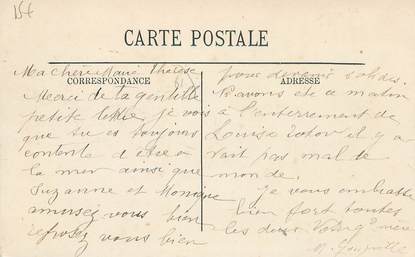 CARTE POSTALE
CORRESPONDANCE
ADRESSE
Ma chère Marie Thérèse
Merci de ta gentille
petite lettre je vois
que tu es toujours
contente d'être à
la mer ainsi que
Suzanne et Monique
amusez vous bien
reposez vous bien
pour devenir solides.
Ns avons été ce matin
à l'enterrement de
Louise il y a
vait pas mal de
monde.
Je vous embrasse
bien fort toutes
les deux Votre gd mère